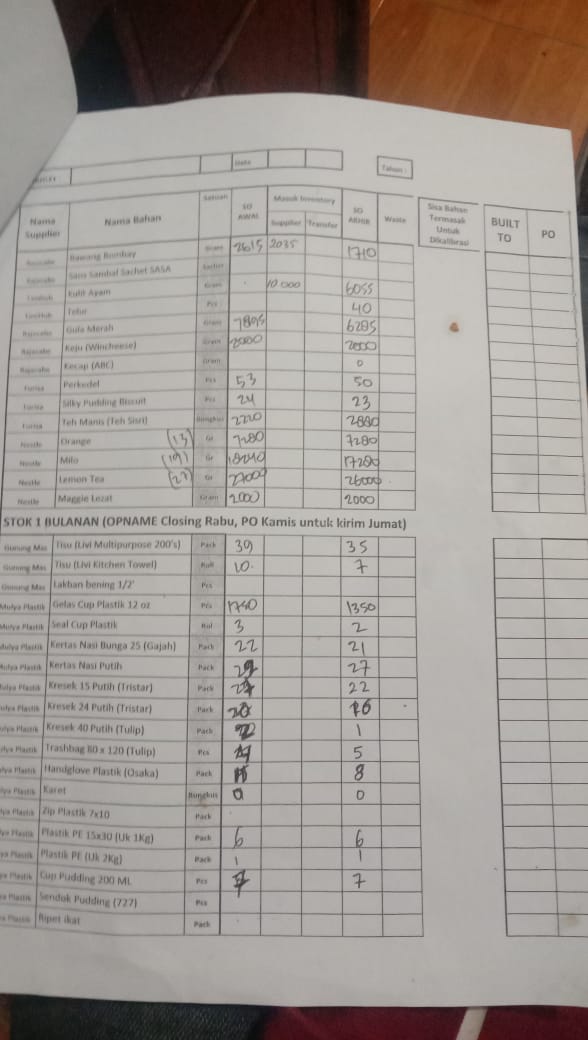 Tahun :
Nama Supplier | Nama Bahan | Satuan | SO AWAL | Masuk Inventory | Supplier | Transfer | SO AKHIR | Waste | Sisa Bahan Termasak Untuk Dikalibrasi | BUILT TO | PO
Bawang Bombay | Gram | 2615 | 2035 | 1710
Saus Sambal Sachet SASA | Sachet
Kulit Ayam | Gram | 10 000 | 6055
Telur | Pcs | 40
Gula Merah | Gram | 7895 | 6285
Keju (Wincheese) | Gram | 2000 | 2000
Kecap (ABC) | Gram | 0
Perkedel | Pcs | 53 | 50
Silky Pudding Biscuit | Pcs | 24 | 23
Teh Manis (Teh Sisri) | Bungkus | 2220 | 2880
Nestle | Orange (13) | Gr | 7280 | 7280
Nestle | Milo | Gr | 17280
Nestle | Lemon Tea (27) | Gr | 27000 | 26000
Nestle | Maggie Lezat | Gram | 2000 | 2000
STOK 1 BULANAN (OPNAME Closing Rabu, PO Kamis untuk kirim Jumat)
Gunung Mas | Tisu (Livi Multipurpose 200's) | Pack | 39 | 35
Gunung Mas | Tisu (Livi Kitchen Towel) | Roll | 10. | 7
Gunung Mas | Lakban bening 1/2' | Pcs
Mulya Plastik | Gelas Cup Plastik 12 oz | Pcs | 1750 | 1350
Mulya Plastik | Seal Cup Plastik | Rol | 3 | 2
Mulya Plastik | Kertas Nasi Bunga 25 (Gajah) | Pack | 22 | 21
Mulya Plastik | Kertas Nasi Putih | Pack | 27
Mulya Plastik | Kresek 15 Putih (Tristar) | Pack | 22
Mulya Plastik | Kresek 24 Putih (Tristar) | Pack | 16
Mulya Plastik | Kresek 40 Putih (Tulip) | Pack | 1
Mulya Plastik | Trashbag 80 x 120 (Tulip) | Pcs | 5
Plastik | Handglove Plastik (Osaka) | Pack | 8
Plastik | Karet | Bungkus | 0 | 0
Plastik | Zip Plastik 7x10 | Pack
Plastik | Plastik PE 15x30 (Uk 1Kg) | Pack | 6 | 6
Plastik | Plastik PE (Uk 2Kg) | Pack | 1 | 1
Plastik | Cup Pudding 200 ML | Pcs | 7
Plastik | Sendok Pudding (727) | Pcs
Plastik | Ripet ikat | Pack